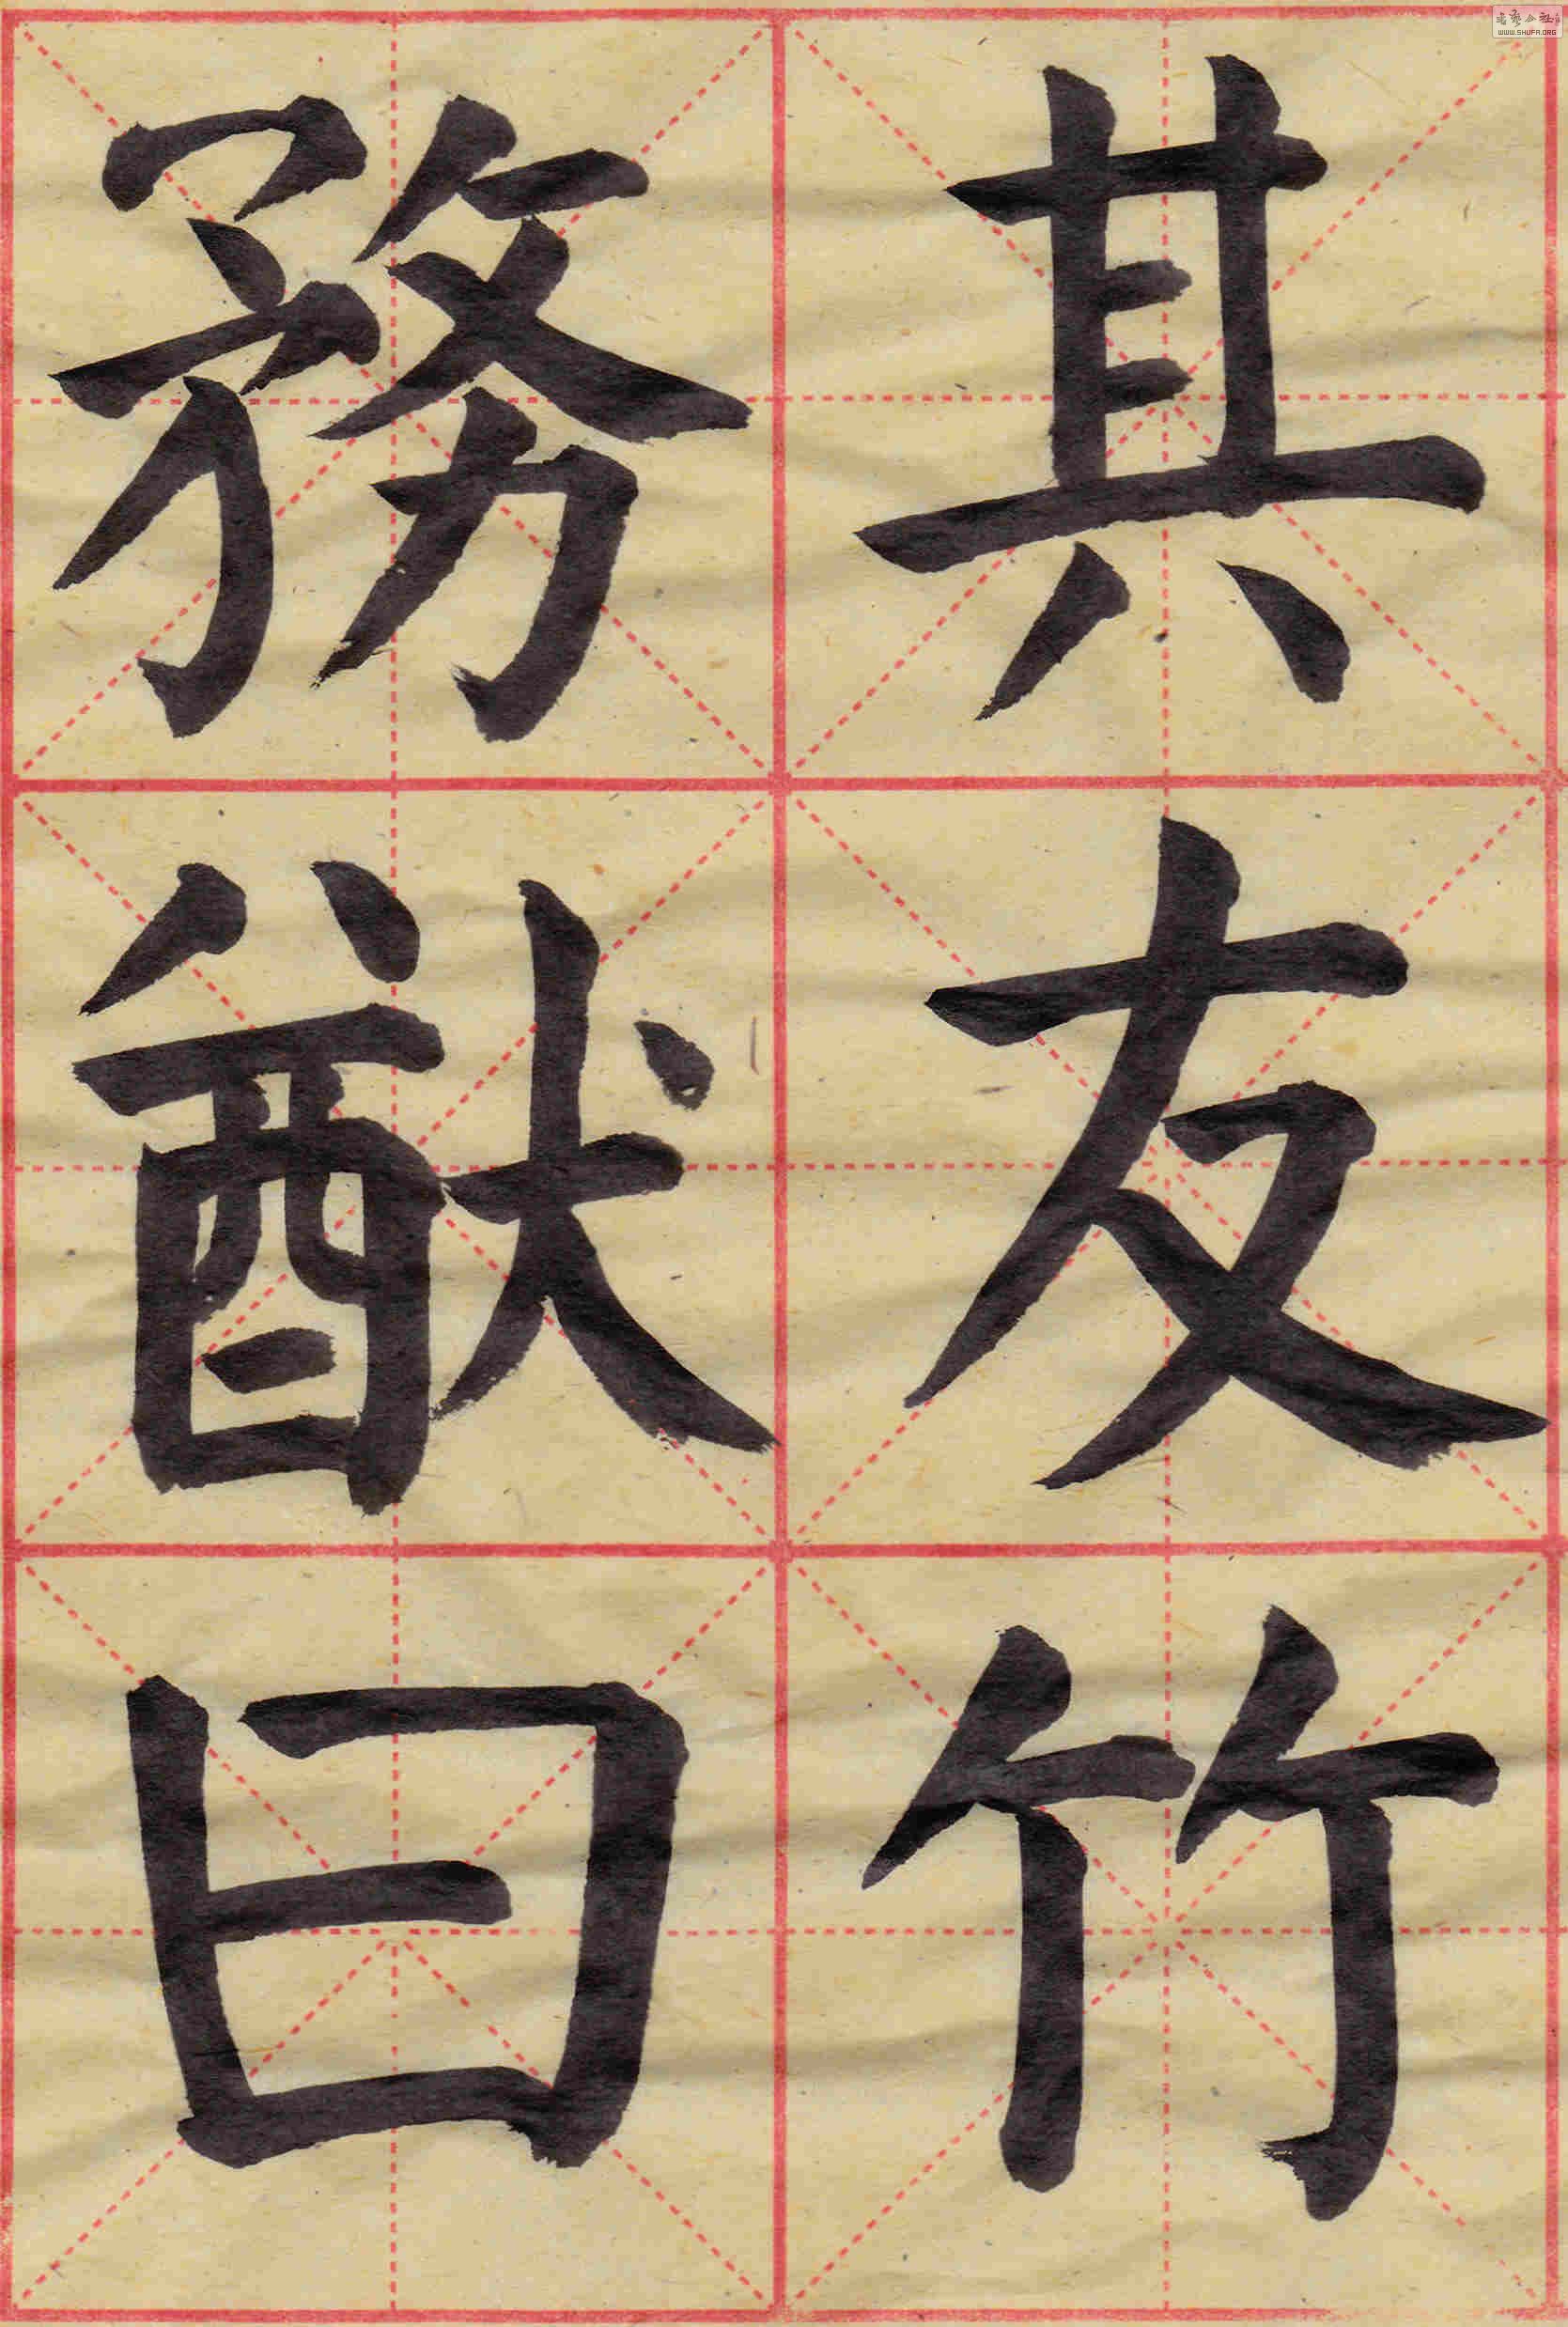 其友竹
務猷曰
WWW.SHUFA.ORG